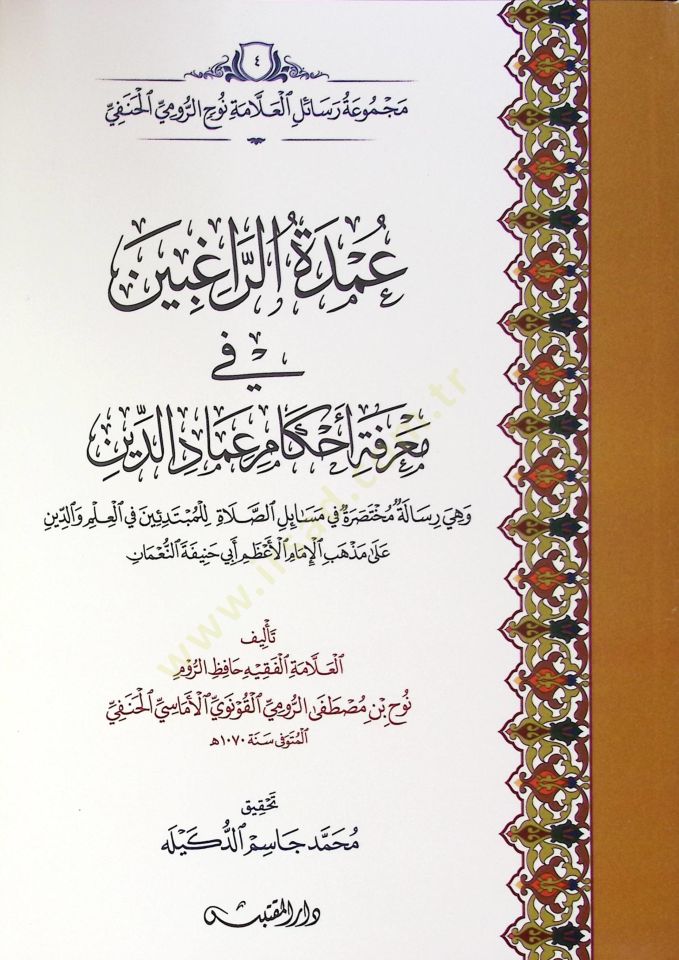 ٤
مَجْمُوعَةُ رَسَائِلِ الْعَلَّامَةِ نُوحِ الرُّومِيِّ الْحَنَفِيِّ
عُمْدَةُ الرَّاغِبِينَ
فِي
مَعْرِفَةِ أَحْكَامِ عِمَادِ الدِّينِ
وَهِيَ رِسَالَةٌ مُخْتَصَرَةٌ فِي مَسَائِلِ الصَّلَاةِ لِلْمُبْتَدِئِينَ فِي الْعِلْمِ وَالدِّينِ
عَلَى مَذْهَبِ الْإِمَامِ الْأَعْظَمِ أَبِي حَنِيفَةَ النُّعْمَانِ
تَأْلِيف
الْعَلَّامَةِ الْفَقِيهِ حَافِظِ الرُّومِ
نُوحِ بْنِ مُصْطَفَى الرُّومِيِّ الْقُونَوِيِّ الْأَمَاسِيِّ الْحَنَفِيِّ
الْمُتَوَفَّى سَنَة ١٠٧٠هـ
تَحْقِيق
مُحَمَّد جَاسِم الدُّكَيْلَه
دار المقتبس